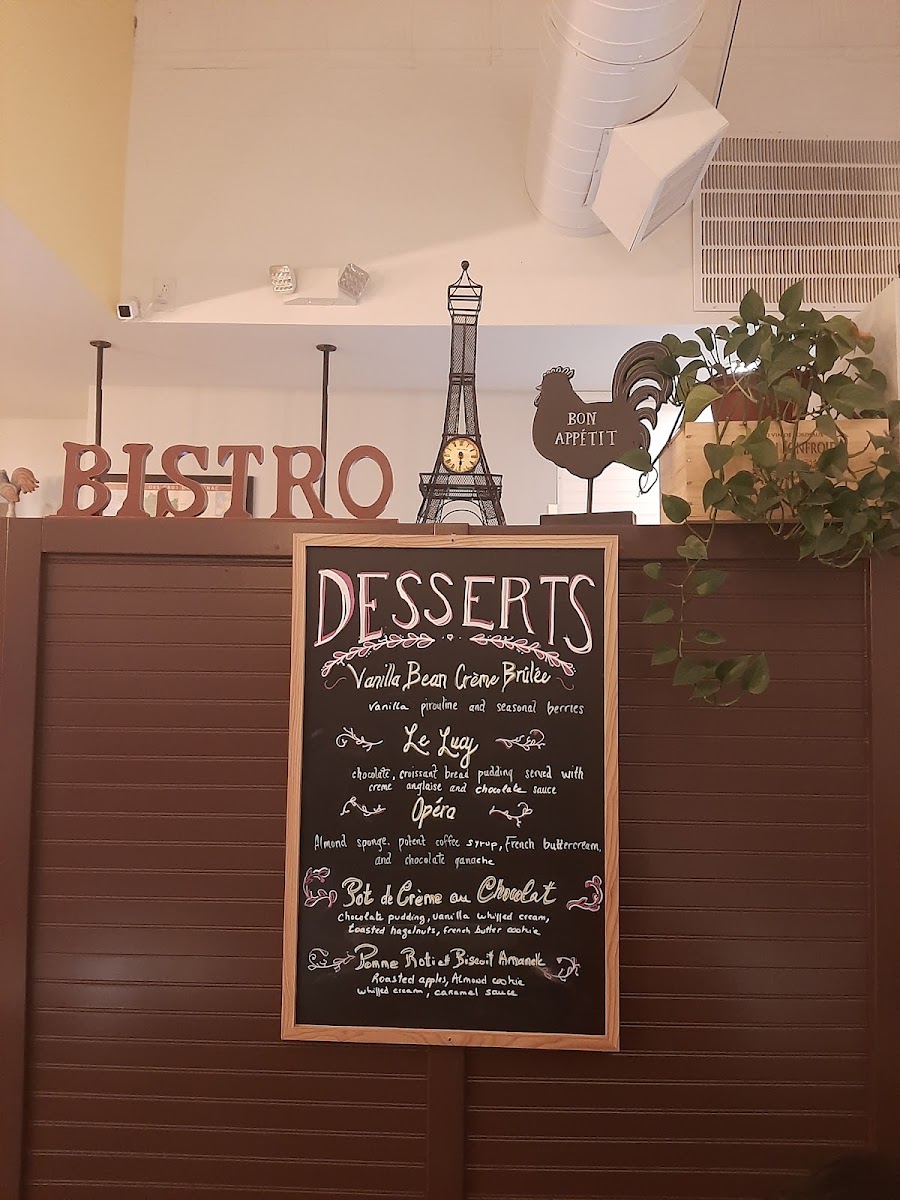 BISTRO
BON
APPÉTIT
DESSERTS
Vanilla Bean Crème Brûlée
Vanilla pirouline and seasonal berries
Le Lucy
chocolate, croissant bread pudding served with
creme anglaise and chocolate sauce
Opéra
Almond sponge, potent coffee syrup, French buttercream,
and chocolate ganache
Pot de Crème au Chocolat
Chocolate pudding, vanilla whipped cream,
toasted hagelnuts, french butter cookie
Pomme Roti et Biscuit Amande
Roasted apples, Almond cookie
whipped cream, caramel sauce